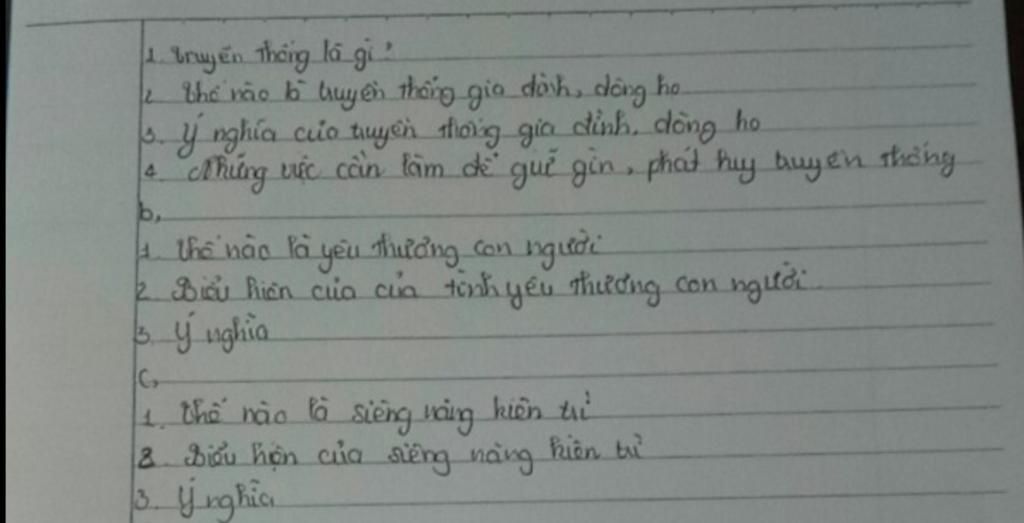 1. truyền thống là gì?
2. thế nào là truyền thống gia đình, dòng họ
3. Ý nghĩa của truyền thống gia đình, dòng họ
4. Những việc cần làm để giữ gìn, phát huy truyền thống
b,
1. thế nào là yêu thương con người
2. Biểu hiện của của tình yêu thương con người
3. Ý nghĩa
C,
1. thế nào là siêng năng kiên trì
2. Biểu hiện của siêng năng kiên trì
3. Ý nghĩa